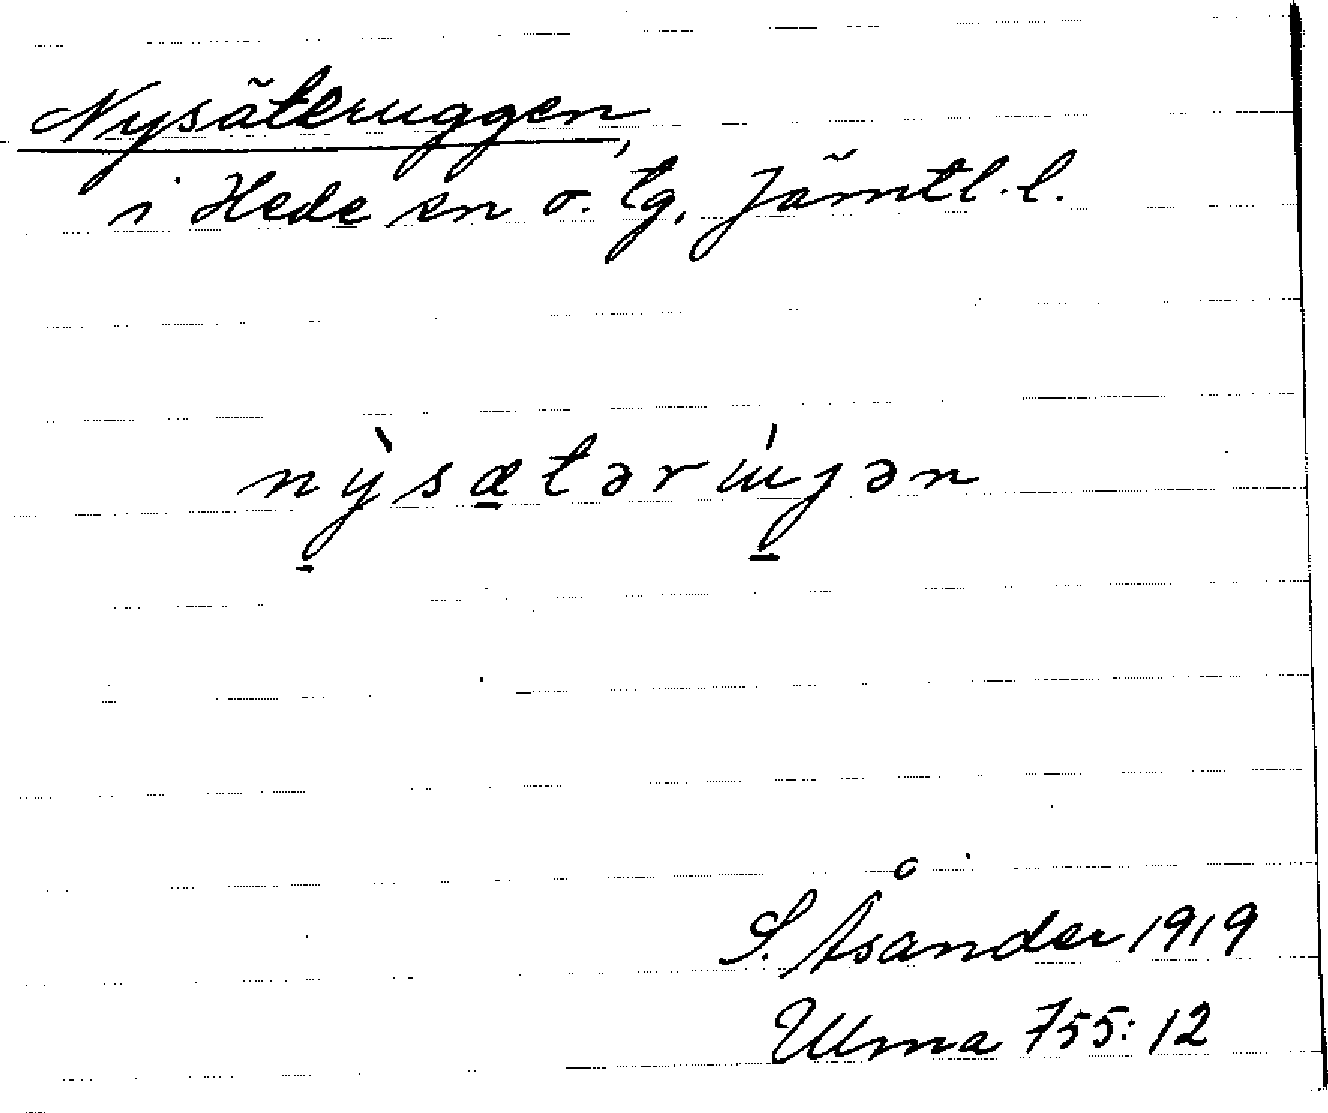 Nysäteruggen,
i Hede sn o. tg, Jämtl. l.
nỳsætərúgjən
S. Åsander 1919
Ulma 755:12